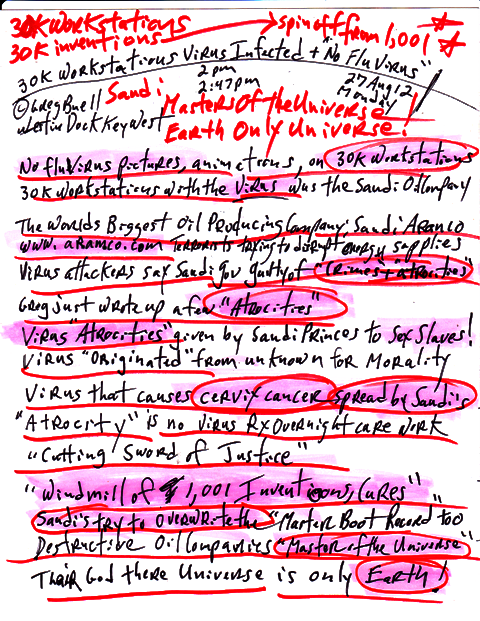 30K Workstations
30K inventions → spin off from 1,001
30K Workstations Virus Infected + "No Flu Virus"
2 pm
2:47 pm
27 Aug 12
Monday
© Greg Buell Saudi
Westin Dock Key West
Masters Of the Universe
Earth Only Universe!
No flu Virus pictures, animections, on 30K Workstations
30K Workstations with the Virus was the Saudi Oil Company
The Worlds Biggest Oil Producing Company; Saudi Aramco
www.aramco.com Terrorists trying to disrupt energy supplies
Virus attackers say Saudi gov guilty of "Crimes + atrocities"
Greg just wrote up a few "Atrocities"
Virus "Atrocities" given by Saudi Princes to Sex Slaves!
Virus "Originated" from unknown for Morality
Virus that causes cervix cancer spread by Saudi's
"Atrocity" is no Virus Rx Overnight care work
"Cutting Sword of Justice"
"Windmill of 1,001 Inventions, Cures"
Saudi's try to overwrite the "Master Boot Record too
Destructive Oil Companies "Master of the Universe"
Their God there Universe is only Earth!